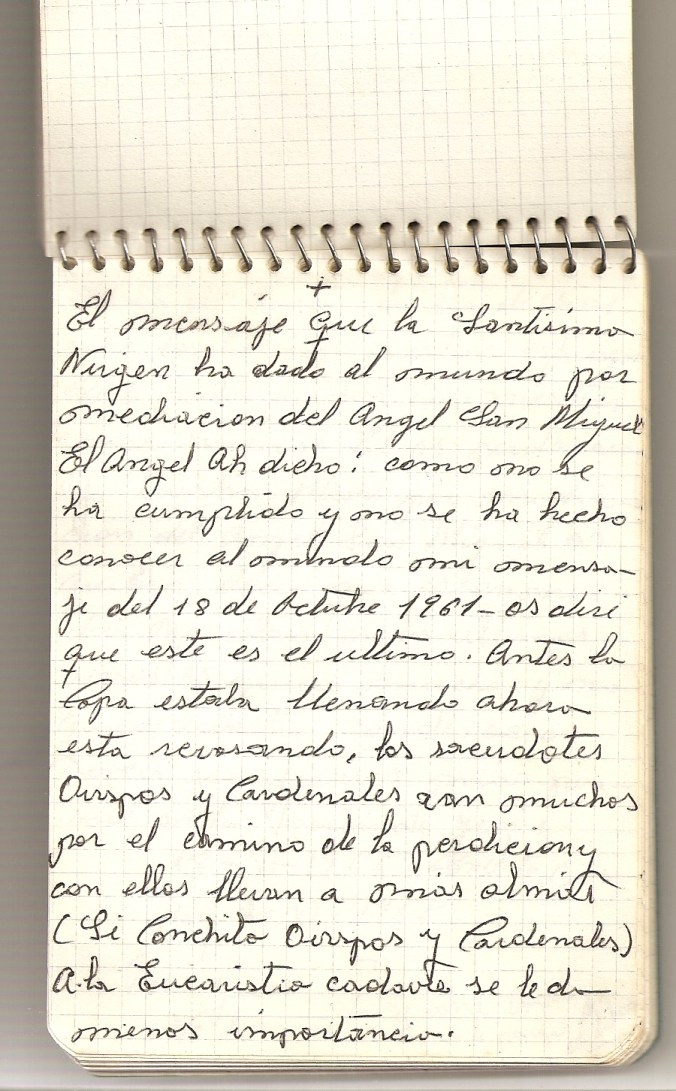 +
El mensaje que la Santisima
Virgen ha dado al mundo por
mediacion del Angel San Miguel
El Angel Ah dicho: como no se
ha cumplido y no se ha hecho
conocer al mundo mi mensa-
je del 18 de Octubre 1961 - os diri
que este es el ultimo. Antes la
Copa estaba llenando ahora
esta revosando, los sacerdotes
Oirspos y Cardenales van muchos
por el camino de la perdicion y
con ellos llevan a mas almas
(Si Conchita Oirspos y Cardenales)
A la Eucaristia cadavez se le da
menos importancia.